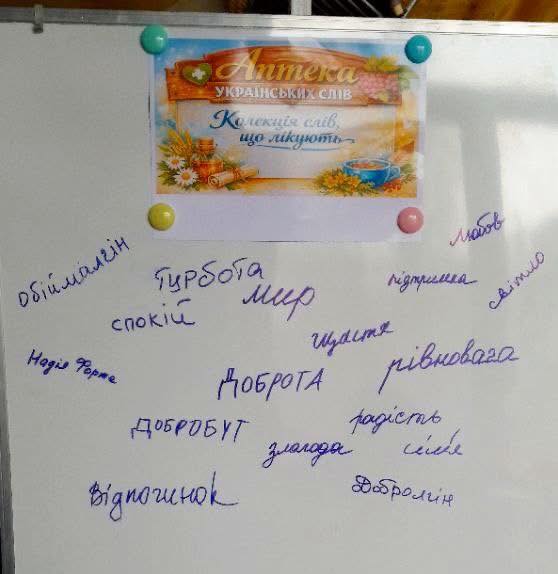 Аптека
УКРАЇНСЬКИХ СЛІВ
Колекція слів,
що лікують
Любов
Обіймалгін
Турбота
підтримка
світло
мир
спокій
щастя
Надія Форте
рівновага
ДОБРОТА
ДОБРОБУТ
радість
злагода
сім'я
Відпочинок
Добролгін